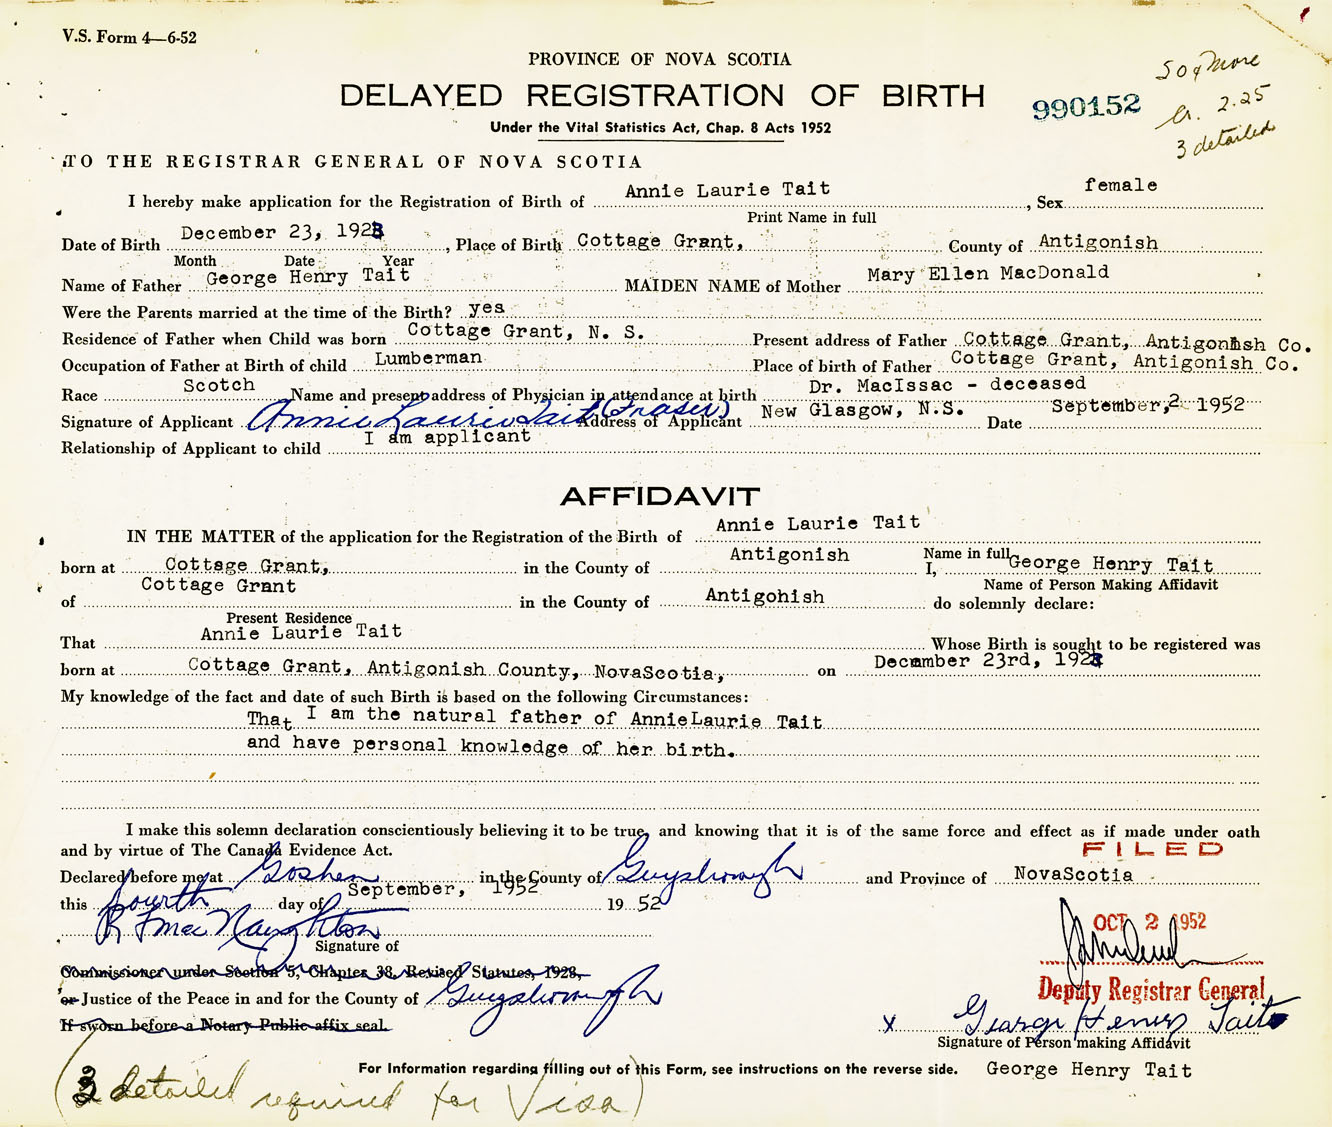 V.S. Form 4—6-52
PROVINCE OF NOVA SCOTIA
DELAYED REGISTRATION OF BIRTH
990152
50¢ More
2.25
3 detailed
Under the Vital Statistics Act, Chap. 8 Acts 1952
TO THE REGISTRAR GENERAL OF NOVA SCOTIA
I hereby make application for the Registration of Birth of Annie Laurie Tait, Sex female
Print Name in full
Date of Birth December 23, 1923, Place of Birth Cottage Grant, County of Antigonish
Month Date Year
Name of Father George Henry Tait MAIDEN NAME of Mother Mary Ellen MacDonald
Were the Parents married at the time of the Birth? yes
Residence of Father when Child was born Cottage Grant, N. S. Present address of Father Cottage Grant, Antigonish Co.
Occupation of Father at Birth of child Lumberman Place of birth of Father Cottage Grant, Antigonish Co.
Race Scotch Name and present address of Physician in attendance at birth Dr. MacIssac - deceased
Signature of Applicant Annie Laurie Tait (Fraser) Address of Applicant New Glasgow, N.S. Date September, 2 1952
Relationship of Applicant to child I am applicant
AFFIDAVIT
IN THE MATTER of the application for the Registration of the Birth of Annie Laurie Tait
Name in full
born at Cottage Grant, in the County of Antigonish I, George Henry Tait
Name of Person Making Affidavit
of Cottage Grant in the County of Antigohish do solemnly declare:
Present Residence
That Annie Laurie Tait Whose Birth is sought to be registered was
born at Cottage Grant, Antigonish County, NovaScotia, on December 23rd, 1923
My knowledge of the fact and date of such Birth is based on the following Circumstances:
That I am the natural father of AnnieLaurie Tait
and have personal knowledge of her birth.
I make this solemn declaration conscientiously believing it to be true, and knowing that it is of the same force and effect as if made under oath
and by virtue of The Canada Evidence Act.
FILED
Declared before me at Goshen in the County of Guysborough and Province of NovaScotia
this fourth day of September, 1952 19 52
R F MacNaughton
OCT 2 1952
Signature of
Commissioner under Section 5, Chapter 38, Revised Statutes, 1923,
Deputy Registrar General
or Justice of the Peace in and for the County of Guysborough
If sworn before a Notary Public affix seal.
x George Henry Tait
Signature of Person making Affidavit
For Information regarding filling out of this Form, see instructions on the reverse side. George Henry Tait
(3 detailed required for Visa)